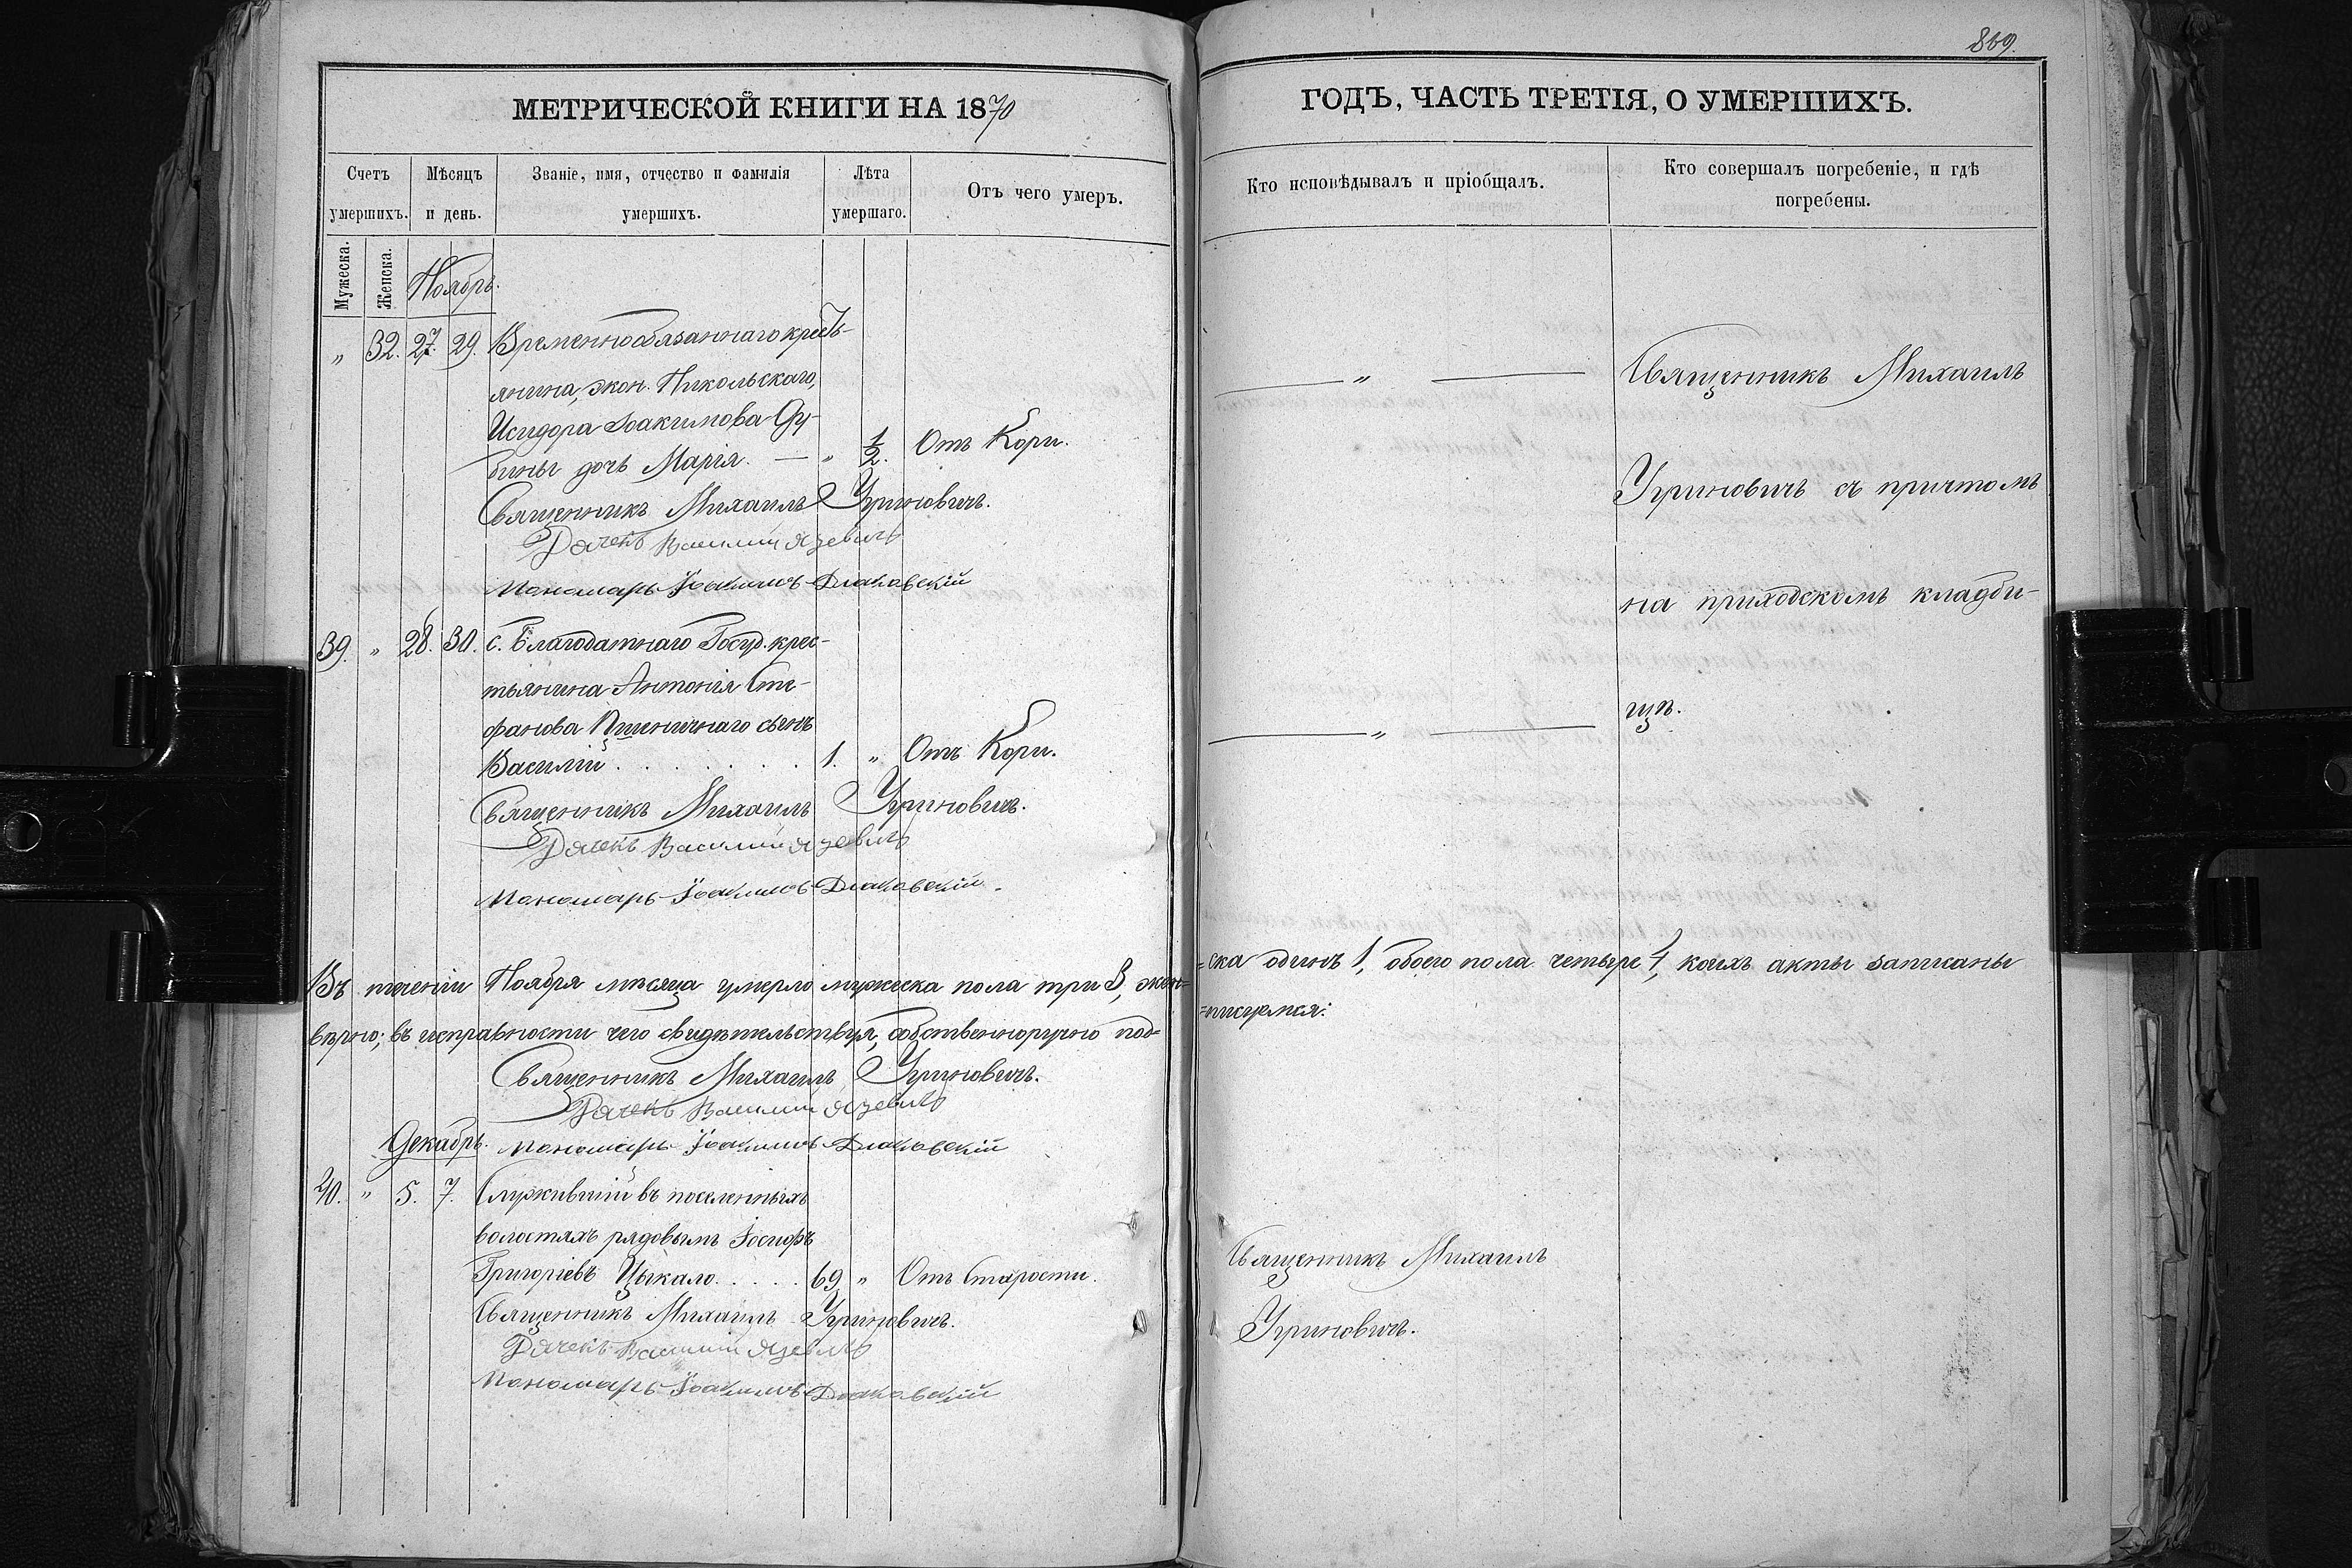 869.
МЕТРИЧЕСКОЙ КНИГИ НА 1870
Счетъ умершихъ.
Мѣсяцъ и день.
Званіе, имя, отчество и фамилія умершихъ.
Лѣта умершаго.
Отъ чего умеръ.
Мужеска.
Женска.
Ноябрь.
" 32. 27. 29. Временнообязаннаго крест-
янина, экон. Никольскаго,
Исидора Іоакимова Ду-
бины дочь Марія. — " 1/2. Отъ Кори.
Священникъ Михаилъ Угриновичъ.
Дячекъ Василій Язевичъ
Пономарь Іоакимъ Діаковскій
39. " 28. 30. с. Благодатнаго Госуд. крес-
тьянина Антонія Сте-
фанова Пшеничнаго сынъ
Василій . . . . . . . 1. " Отъ Кори.
Священникъ Михаилъ Угриновичъ.
Дячекъ Василій Язевичъ
Пономарь Іоакимъ Діаковскій.
Въ теченіи Ноября мѣсяца умерло мужеска пола три 3, жен=
вѣрно; въ исправности чего свидѣтельствуя, собственноручно под=
Священникъ Михаилъ Угриновичъ.
Дячекъ Василій Язевичъ
Декабрь. Пономарь Іоакимъ Діаковскій
40. " 5. 7. Служившій въ поселенныхъ
волостяхъ рядовымъ Іосифъ
Григоріевъ Цыкало. . . . . 69 " Отъ Старости.
Священникъ Михаилъ Угриновичъ.
Дячекъ Василій Язевичъ
Пономарь Іоакимъ Діаковскій
ГОДЪ, ЧАСТЬ ТРЕТІЯ, О УМЕРШИХЪ.
Кто исповѣдывалъ и пріобщалъ.
Кто совершалъ погребеніе, и гдѣ
погребены.
— " — Священникъ Михаилъ
Угриновичъ съ причтомъ
на приходскомъ кладби-
щѣ.
— " —
=ска одинъ 1, обоего пола четыре 4, коихъ акты записаны
=писуемся:
Священникъ Михаилъ
Угриновичъ.